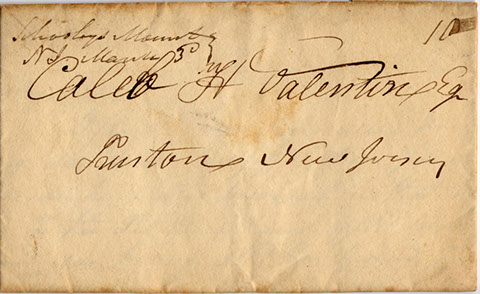 Schooleys Mount
10
NJ March 3d
Caleb H Valentine Esq
New Jersey